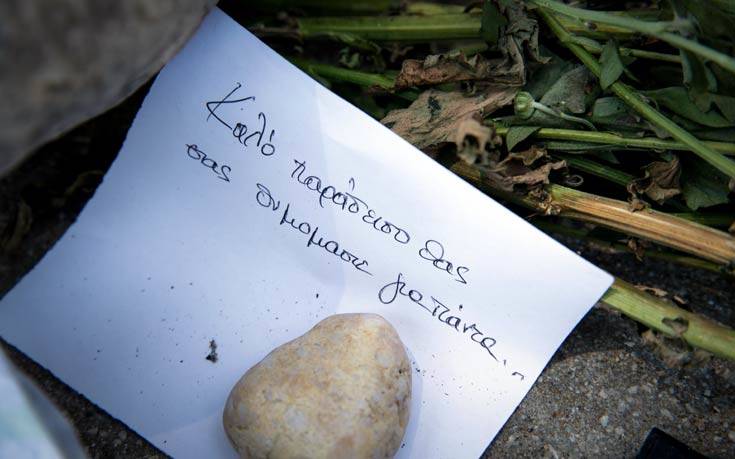 Καλό παράδεισο θας
σας θυμομαστε για πάντα...